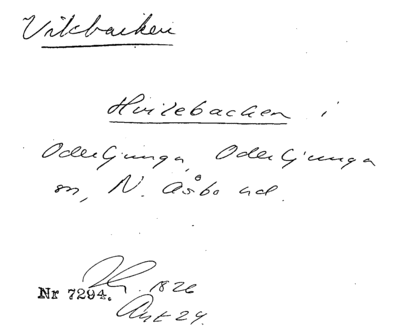 Vilebacken
Hvilebacken i
Oderljunga, Oderljunga
sn, N. Åsbo hd.
1826
Nr 7294.
Akt 24.